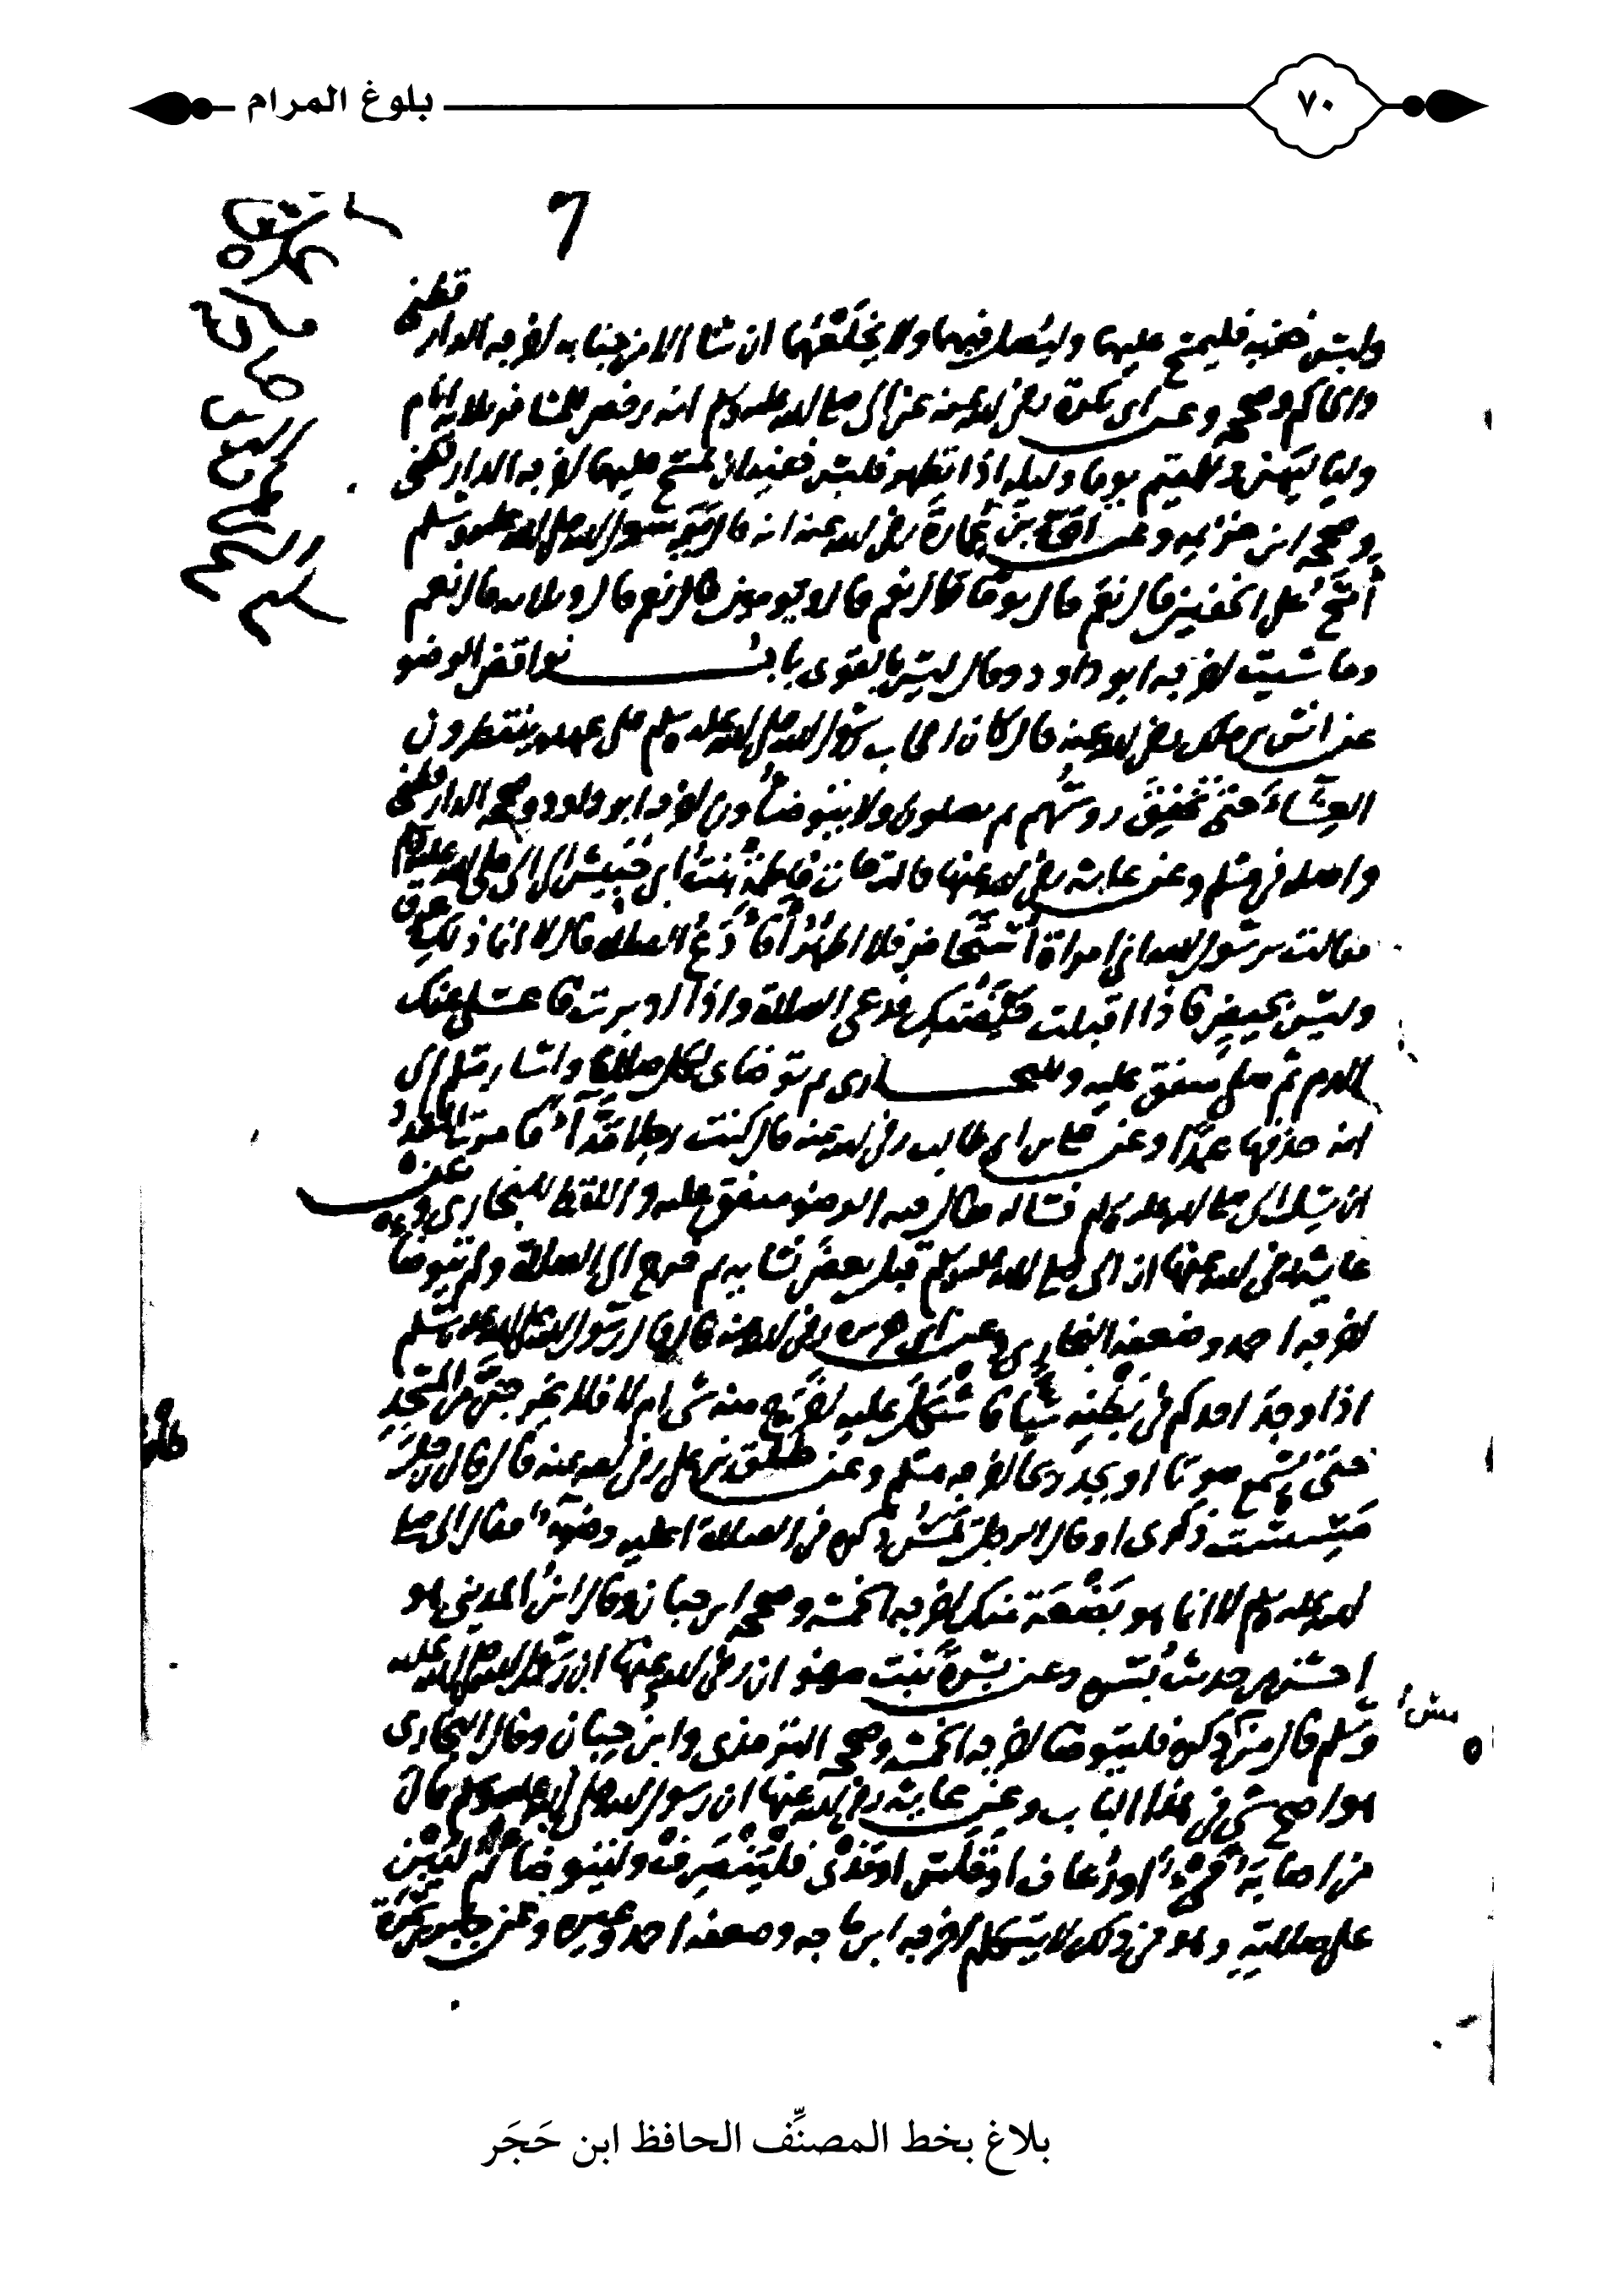 بلوغ المرام
٧٠
ولبس خفيه فليمسح عليهما وليصل فيهما ولا يخلعهما ان شا الا من جنابه اخرجه الدارقطني
والحاكم وصححه وعن ابي بكرة رضي الله عنه عن النبي صلى الله عليه وسلم انه رخص للمسافر ثلاثه ايام
ولياليهن وللمقيم يوما وليله اذا تطهر فلبس خفيه ان يمسح عليهما اخرجه الدارقطني
وصححه ابن خزيمه وعن ابي بن عمارة رضي الله عنه انه قال يا رسول الله صلى الله عليه وسلم
أمسح على الخفين قال نعم قال يوما قال نعم قال ويومين قال نعم قال وثلاثه قال نعم
وما شيت اخرجه ابو داود وقال ليس بالقوي باب نواقض الوضو
عن انس بن ملك رضي الله عنه قال كان اصحاب رسول الله صلى الله عليه وسلم على عهده ينتظرون
العشاء حتى تخفق روسهم ثم يصلون ولا يتوضأون اخرجه ابو داود وصححه الدارقطني
واصله في مسلم وعن عايشه رضي الله عنها قالت جات فاطمة بنت ابي حبيش الى النبي صلى الله عليه وسلم
فقالت يرسول الله اني امراة أستحاض فلا اطهر أفأدع الصلاة قال لا انما ذلك عرق
وليس بحيض فاذا اقبلت حيضتك فدعي الصلاة واذا ادبرت فاغسلي عنك
الدم ثم صلي متفق عليه وللبخاري ثم توضاي لكل صلاة واشار مسلم الى
انه حذفها عمدا وعن علي بن ابي طالب رضي الله عنه قال كنت رجلا مذّاءً فامرت المقداد
ان يسل النبي صلى الله عليه وسلم فساله فقال فيه الوضو متفق عليه واللفظ للبخاري وعن
عايشه رضي الله عنها ان النبي صلى الله عليه وسلم قبل بعض نسايه ثم خرج الى الصلاة ولم يتوضا
اخرجه احمد وضعفه البخاري وعن ابي هريره رضي الله عنه قال قال رسول الله صلى الله عليه وسلم
اذا وجد احدكم في بطنه شيا فاشكل عليه اخرج منه شي ام لا فلا يخرجن من المسجد
حتى يسمع صوتا او يجد ريحا اخرجه مسلم وعن طلق بن علي رضي الله عنه قال قال رجل
مسست ذكري او قال الرجل يمس ذكره في الصلاة اعليه وضوء فقال النبي صلى
الله عليه وسلم لا انما هو بضعة منك اخرجه الخمسه وصححه ابن حبان وقال ابن المديني هو
احسن من حديث بسره وعن بسرة بنت صفوان رضي الله عنها ان رسول الله صلى الله عليه
وسلم قال من مس ذكره فليتوضا اخرجه الخمسه وصححه الترمذي وابن حبان وقال البخاري
هو اصح شي في هذا الباب وعن عايشه رضي الله عنها ان رسول الله صلى الله عليه وسلم قال
من اصابه قيء او رعاف او قلس او مذي فلينصرف وليتوضا ثم ليبن
على صلاته وهو في ذلك لا يتكلم اخرجه ابن ماجه وضعفه احمد وغيره وعن جابر بن سمرة
بلاغ بخط المصنِّف الحافظ ابن حَجَر